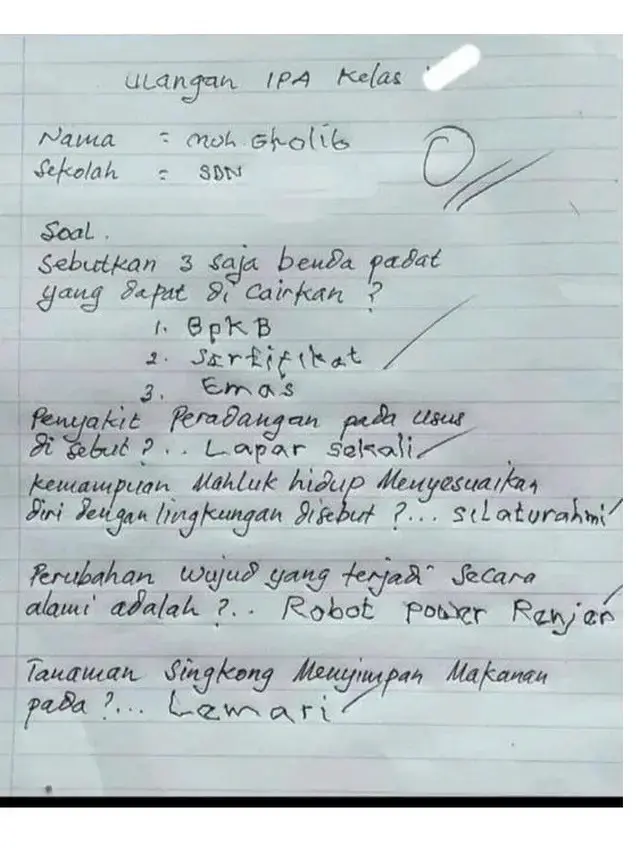 ulangan IPA Kelas
Nama : moh. Gholib
Sekolah : SDN
0
Soal.
Sebutkan 3 saja benda padat
yang dapat di cairkan ?
1. BpKB
2. Sertifikat
3. Emas
Penyakit Peradangan pada usus
di sebut ?.. Lapar sekali
kemampuan Mahluk hidup Menyesuaikan
diri dengan lingkungan disebut ?... silaturahmi
Perubahan wujud yang terjadi secara
alami adalah ?.. Robot power Renjer
Tanaman Singkong Menyimpan Makanan
pada ?... Lemari